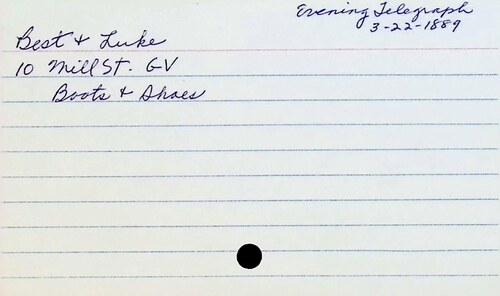 Evening Telegraph
3-22-1889
Best & Luke
10 Mill St. GV
Boots & Shoes